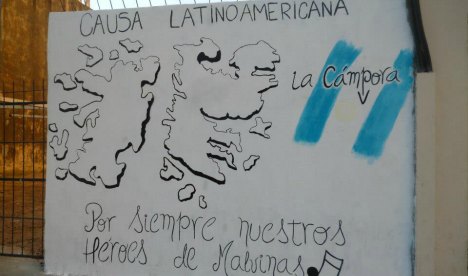 CAUSA LATINOAMERICANA
La Cámpora
Por siempre nuestros
Héroes de Malvinas